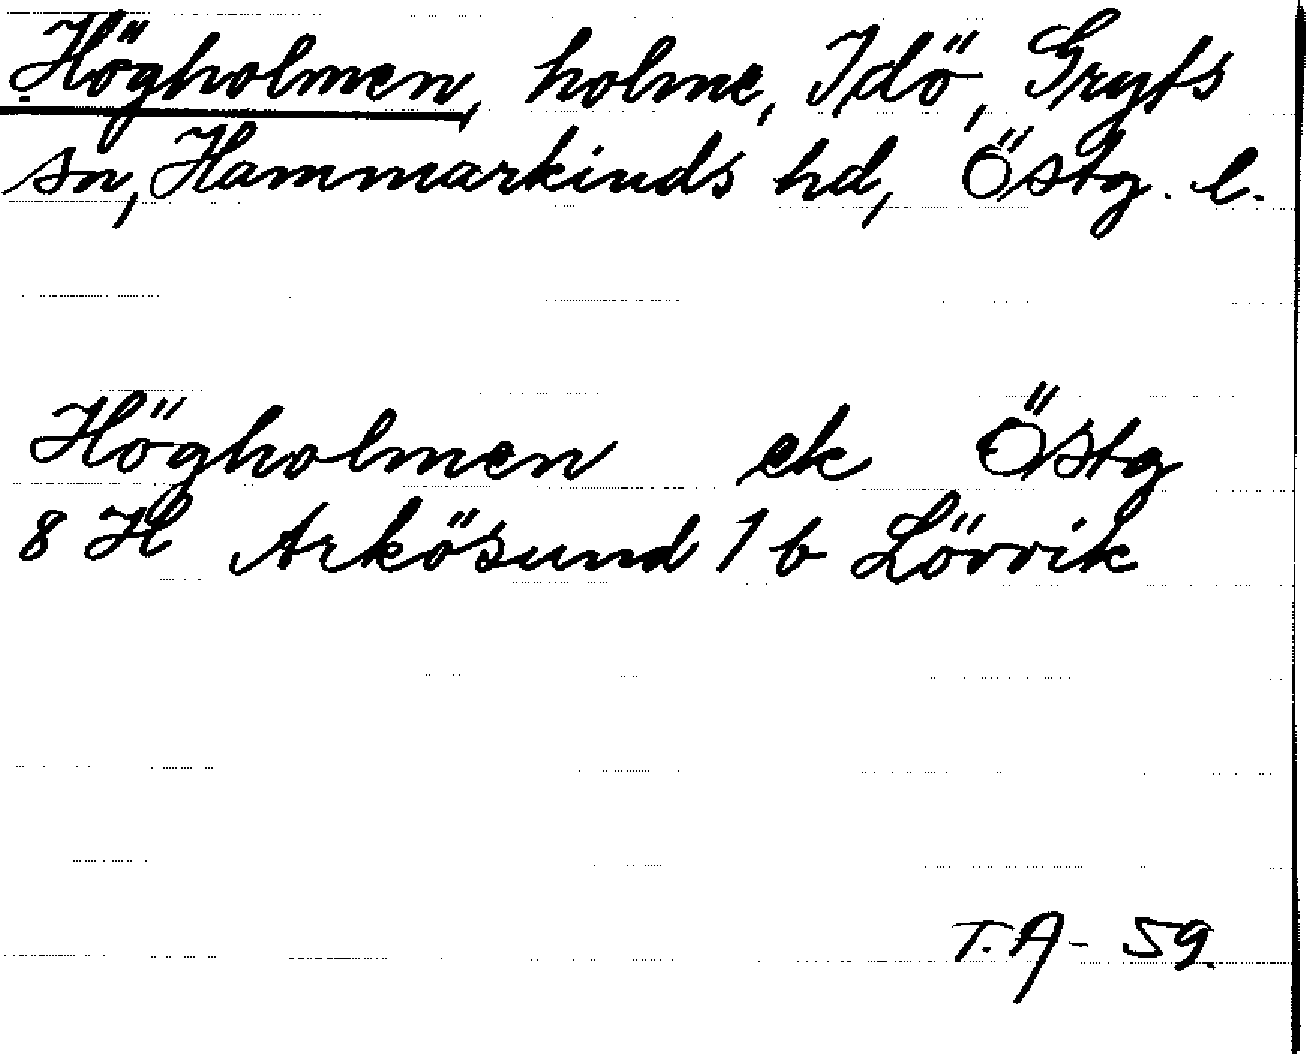 Högholmen, holme, Idö, Gryts
sn, Hammarkinds hd, Östg. l.
Högholmen ek Östg
8 H Arkösund 1 b Lövvik
T.A- 59.